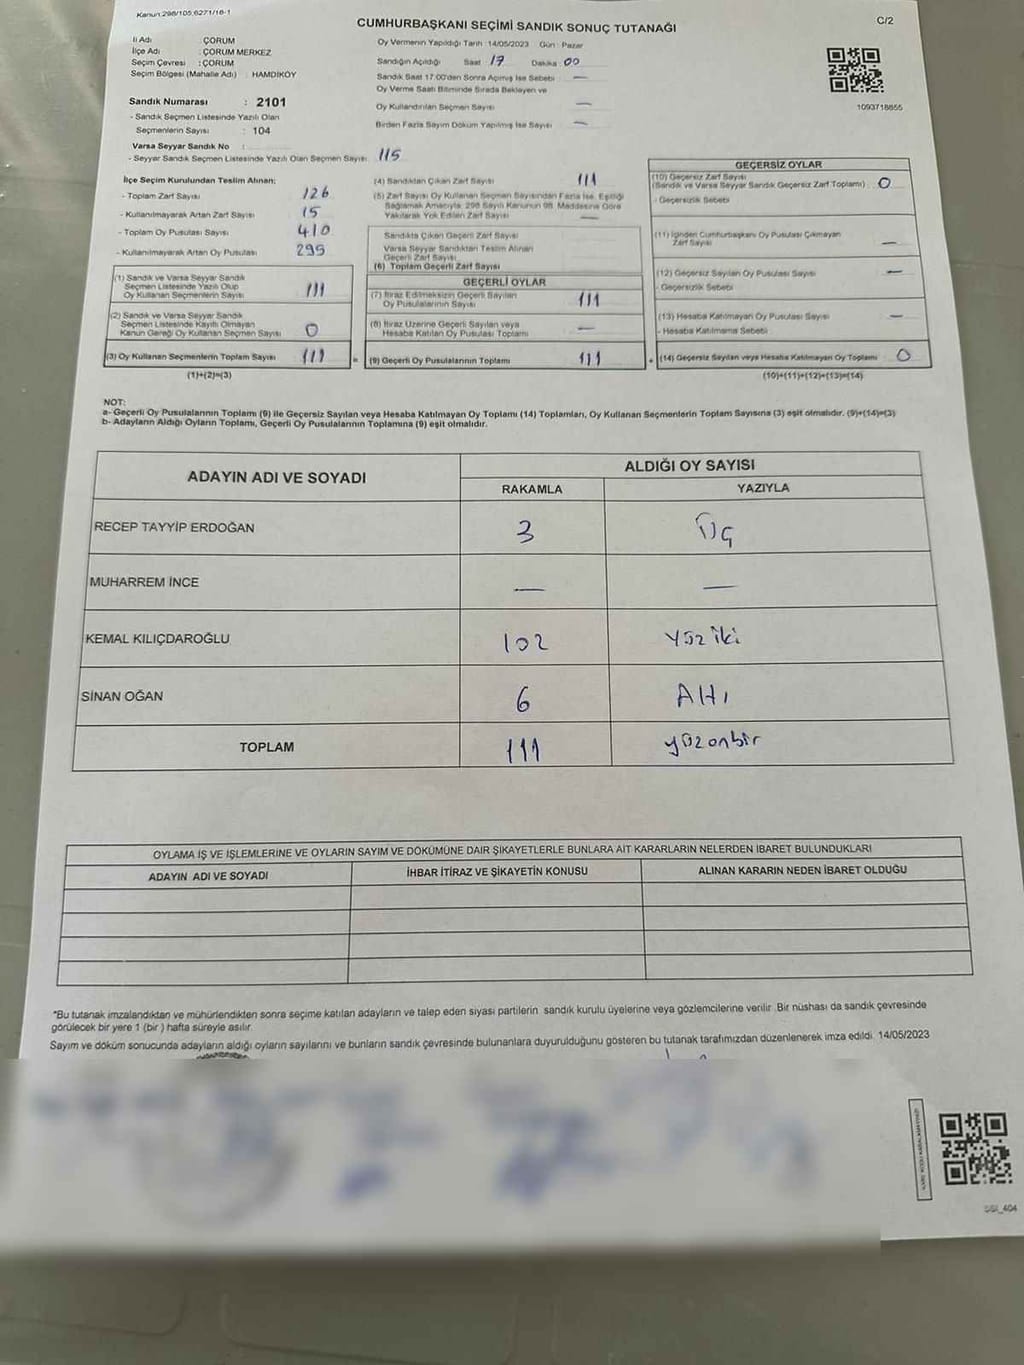 Kanun:298/105;6271/16-1
CUMHURBAŞKANI SEÇİMİ SANDIK SONUÇ TUTANAĞI
C/2
İl Adı : ÇORUM
İlçe Adı : ÇORUM MERKEZ
Seçim Çevresi : ÇORUM
Seçim Bölgesi (Mahalle Adı) : HAMDİKÖY
Sandık Numarası : 2101
- Sandık Seçmen Listesinde Yazılı Olan
Seçmenlerin Sayısı : 104
Varsa Seyyar Sandık No :
- Seyyar Sandık Seçmen Listesinde Yazılı Olan Seçmen Sayısı: 115
Oy Vermenin Yapıldığı Tarih :14/05/2023 Gün : Pazar
Sandığın Açıldığı Saat 17 Dakika 00
Sandık Saat 17.00'den Sonra Açılmış İse Sebebi : —
Oy Verme Saati Bitiminde Sırada Bekleyen ve
Oy Kullandırılan Seçmen Sayısı : —
Birden Fazla Sayım Döküm Yapılmış İse Sayısı : —
1093718855
İlçe Seçim Kurulundan Teslim Alınan:
- Toplam Zarf Sayısı : 126
- Kullanılmayarak Artan Zarf Sayısı : 15
- Toplam Oy Pusulası Sayısı : 410
- Kullanılmayarak Artan Oy Pusulası : 295
(1) Sandık ve Varsa Seyyar Sandık
Seçmen Listesinde Yazılı Olup
Oy Kullanan Seçmenlerin Sayısı : 111
(2) Sandık ve Varsa Seyyar Sandık
Seçmen Listesinde Kayıtlı Olmayan
Kanun Gereği Oy Kullanan Seçmen Sayısı : 0
(3) Oy Kullanan Seçmenlerin Toplam Sayısı : 111
(1)+(2)=(3)
(4) Sandıktan Çıkan Zarf Sayısı : 111
(5) Zarf Sayısı Oy Kullanan Seçmen Sayısından Fazla İse, Eşitliği
Sağlamak Amacıyla, 298 Sayılı Kanunun 98. Maddesine Göre
Yakılarak Yok Edilen Zarf Sayısı : —
Sandıkta Çıkan Geçerli Zarf Sayısı
Varsa Seyyar Sandıktan Teslim Alınan
Geçerli Zarf Sayısı
(6) Toplam Geçerli Zarf Sayısı
GEÇERLİ OYLAR
(7) İtiraz Edilmeksizin Geçerli Sayılan
Oy Pusulalarının Sayısı : 111
(8) İtiraz Üzerine Geçerli Sayılan veya
Hesaba Katılan Oy Pusulası Toplamı : —
= (9) Geçerli Oy Pusulalarının Toplamı : 111
GEÇERSİZ OYLAR
(10) Geçersiz Zarf Sayısı
(Sandık ve Varsa Seyyar Sandık Geçersiz Zarf Toplamı) : 0
- Geçersizlik Sebebi :
(11) İçinden Cumhurbaşkanı Oy Pusulası Çıkmayan
Zarf Sayısı : —
(12) Geçersiz Sayılan Oy Pusulası Sayısı : —
- Geçersizlik Sebebi :
(13) Hesaba Katılmayan Oy Pusulası Sayısı : —
- Hesaba Katılmama Sebebi :
+ (14) Geçersiz Sayılan veya Hesaba Katılmayan Oy Toplamı : 0
(10)+(11)+(12)+(13)=(14)
NOT:
a- Geçerli Oy Pusulalarının Toplamı (9) ile Geçersiz Sayılan veya Hesaba Katılmayan Oy Toplamı (14) Toplamları, Oy Kullanan Seçmenlerin Toplam Sayısına (3) eşit olmalıdır. (9)+(14)=(3)
b- Adayların Aldığı Oyların Toplamı, Geçerli Oy Pusulalarının Toplamına (9) eşit olmalıdır.
ADAYIN ADI VE SOYADI
ALDIĞI OY SAYISI
RAKAMLA YAZIYLA
RECEP TAYYİP ERDOĞAN 3 Üç
MUHARREM İNCE — —
KEMAL KILIÇDAROĞLU 102 Yüz iki
SİNAN OĞAN 6 Altı
TOPLAM 111 yüzonbir
OYLAMA İŞ VE İŞLEMLERİNE VE OYLARIN SAYIM VE DÖKÜMÜNE DAİR ŞİKAYETLERLE BUNLARA AİT KARARLARIN NELERDEN İBARET BULUNDUKLARI
ADAYIN ADI VE SOYADI İHBAR İTİRAZ VE ŞİKAYETİN KONUSU ALINAN KARARIN NEDEN İBARET OLDUĞU
*Bu tutanak imzalandıktan ve mühürlendikten sonra seçime katılan adayların ve talep eden siyasi partilerin sandık kurulu üyelerine veya gözlemcilerine verilir. Bir nüshası da sandık çevresinde
görülecek bir yere 1 (bir ) hafta süreyle asılır.
Sayım ve döküm sonucunda adayların aldığı oyların sayılarını ve bunların sandık çevresinde bulunanlara duyurulduğunu gösteren bu tutanak tarafımızdan düzenlenerek imza edildi. 14/05/2023